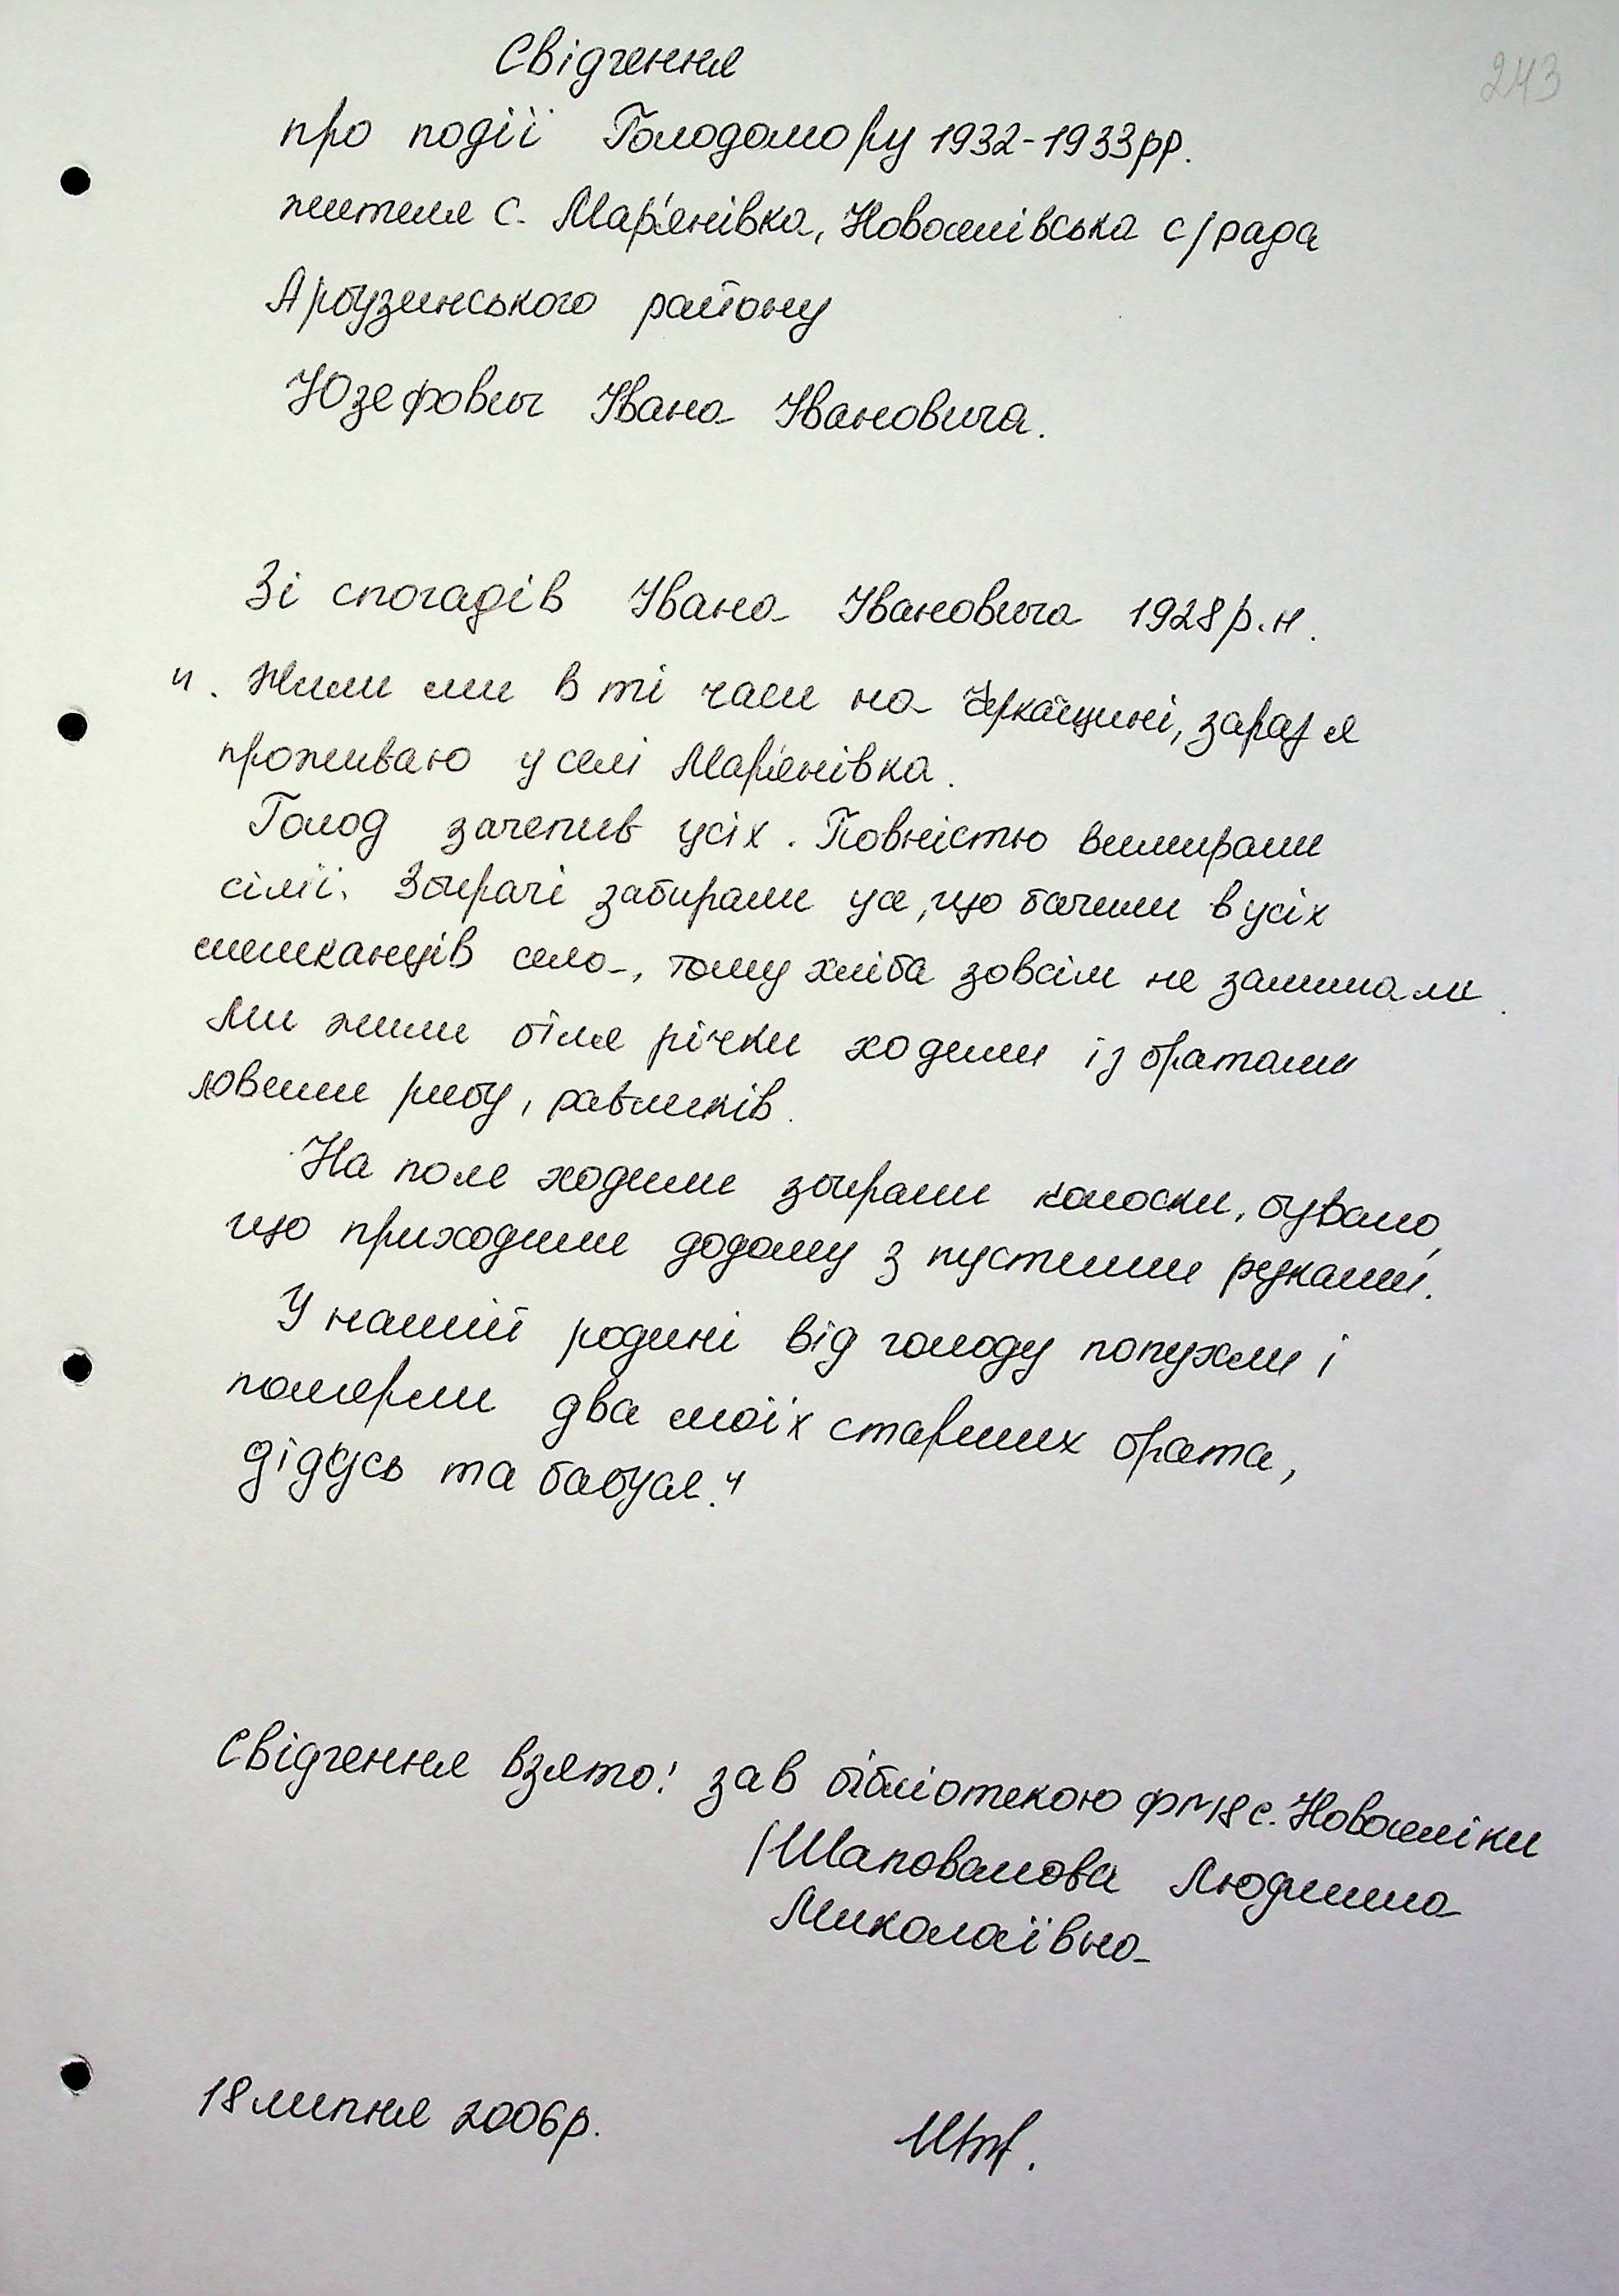 243
Свідчення
про події Голодомору 1932-1933рр.
жителя с. Мар'янівка, Новоселівська с/рада
Арбузинського району
Юзефович Івана Івановича.
Зі спогадів Івана Івановича 1928р.н.
". Жили ми в ті часи на Черкащині, зараз я
проживаю у селі Мар'янівка.
Голод зачепив усіх. Повністю вимирали
сім'ї. Збирачі забирали усе, що бачили в усіх
мешканців села, тому хліба зовсім не залишали.
Ми жили біля річки ходили із братами
ловили рибу, равликів.
На поле ходили збирали колоски, бувало,
що приходили додому з пустими руками.
У нашій родині від голоду попухли і
померли два моїх старших брата,
дідусь та бабуся."
Свідчення взято: зав бібліотекою ф№18 с. Новоселівки
/Шаповалова Людмила
Миколаївна
18 липня 2006р.